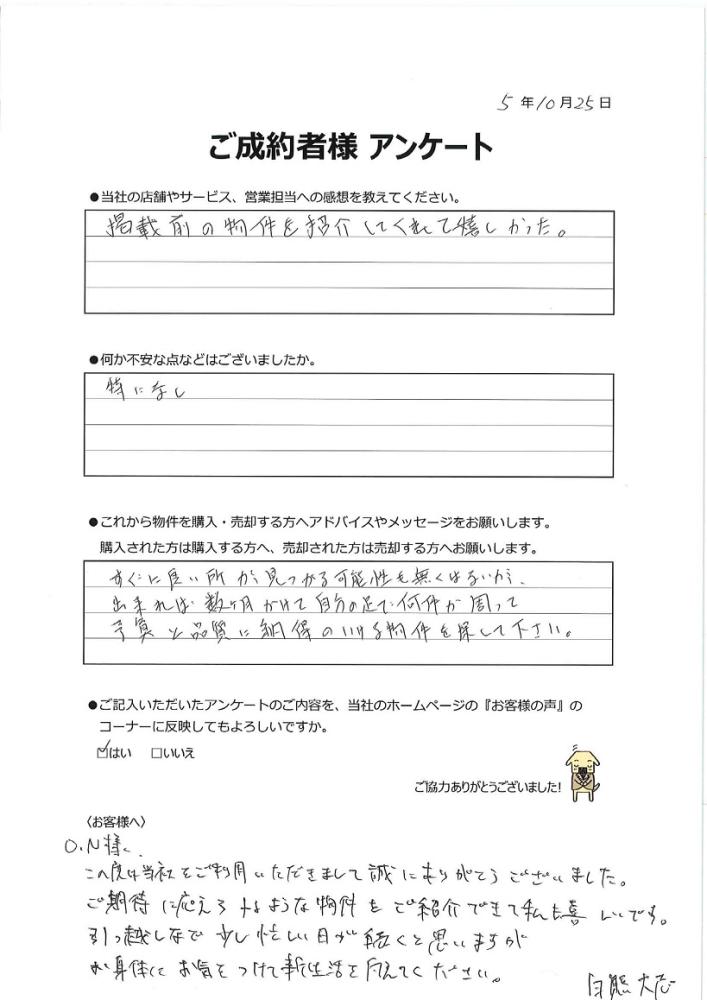 5年10月25日
ご成約者様 アンケート
●当社の店舗やサービス、営業担当への感想を教えてください。
掲載前の物件を紹介してくれて嬉しかった。
●何か不安な点などはございましたか。
特になし
●これから物件を購入・売却する方へアドバイスやメッセージをお願いします。
購入された方は購入する方へ、売却された方は売却する方へお願いします。
すぐに良い所が見つかる可能性も無くはないが、
出来れば数ヶ月かけて自分の足で何件か周って
予算と品質に納得のいける物件を探して下さい。
●ご記入いただいたアンケートのご内容を、当社のホームページの『お客様の声』の
コーナーに反映してもよろしいですか。
☑はい □いいえ
ご協力ありがとうございました!
〈お客様へ〉
O.N様
この度は当社をご利用いただきまして誠にありがとうございました。
ご期待に応えられるような物件をご紹介できて私も喜しいです。
引っ越しなどで少し忙しい日が続くと思いますが
お身体にお気をつけて新生活を迎えてください。